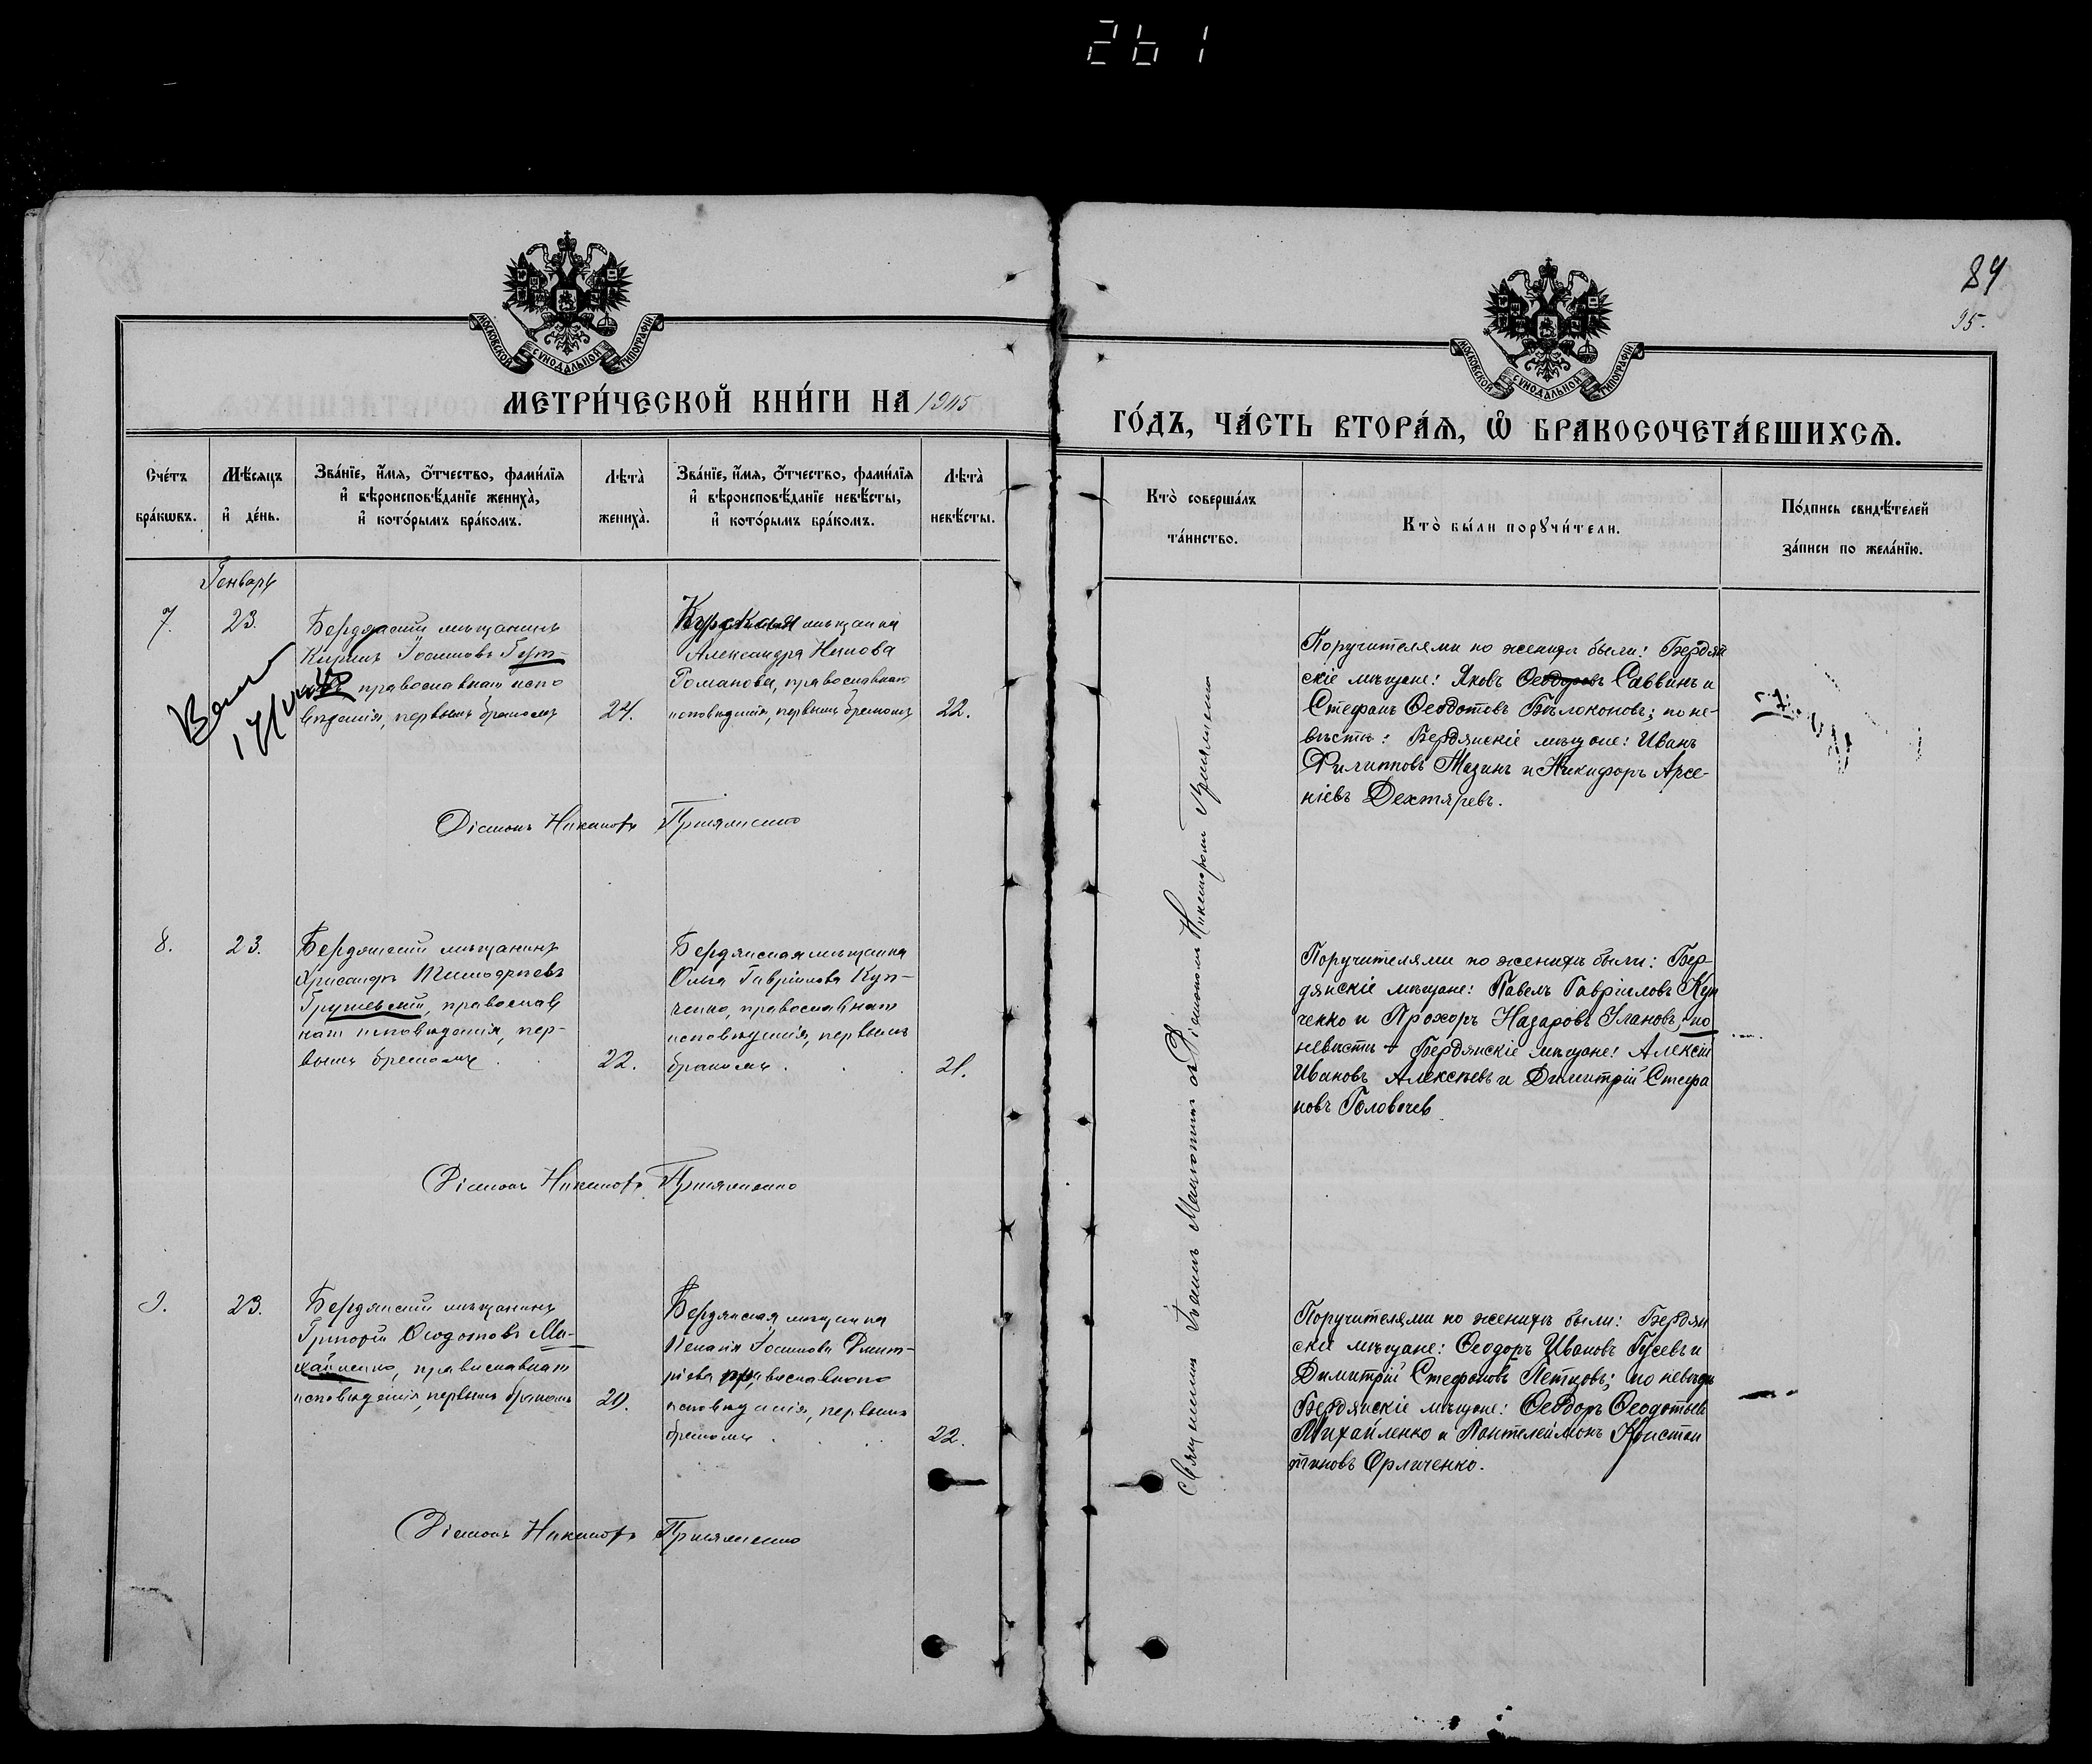 261
84
95.
МОСКОВСКОЙ СУНОДАЛЬНОЙ ТИПОГРАФІИ
МОСКОВСКОЙ СУНОДАЛЬНОЙ ТИПОГРАФІИ
МЕТРИ́ЧЕСКОЙ КНИ́ГИ НА 1905
ГО́ДЪ, ЧА́СТЬ ВТОРА́Ѧ, Ѽ БРАКОСОЧЕТА́ВШИХСѦ.
Сче́тъ
бра́кѡвъ.
Мѣ́сяцъ
и҆ де́нь.
Зва́нїе, и҆́мя, ѻ҆́тчество, фами́лїя
и҆ вѣроисповѣ́данїе жениха̀,
и҆ кото́рымъ бра́комъ.
Лѣта̀
жениха̀.
Зва́нїе, и҆́мя, ѻ҆́тчество, фами́лїя
и҆ вѣроисповѣ́данїе невѣ́сты,
и҆ кото́рымъ бра́комъ.
Лѣта̀
невѣ́сты.
Кто̀ соверша́лъ
та́инство.
Кто̀ бы́ли порꙋчи́тели.
По́дпись свидѣ́телей
за́писи по жела́нїю.
Генварь
7.
23.
Бердянскій мѣщанинъ
Іоакимовъ
православнаго испо
вѣданія, первымъ бракомъ
24.
Курская мѣщанка
Александра
Романова, православнаго
исповѣданія, первымъ бракомъ
22.
Поручителями по женихѣ были: Бердян
скіе мѣщане: Яковъ Ѳеодоровъ Саввинъ и
Стефанъ Ѳеодотовъ Бѣлоконовъ; по не-
вѣстѣ: Бердянскіе мѣщане: Иванъ
Филипповъ Мазинъ и Никифоръ Арсе-
ніевъ Дехтяревъ.
Діаконъ Никаноръ
8.
23.
Бердянскій мѣщанинъ
Хрисанфъ Тимофеевъ
Грушевскій, православ
наго исповѣданія, пер-
вымъ бракомъ
22.
Бердянская мѣщанка
Ольга Гавріилова Куп-
ченко, православнаго
исповѣданія, первымъ
бракомъ
21.
Поручителями по женихѣ были: Бер-
дянскіе мѣщане: Павелъ Гавріиловъ Куп
ченко и Прохоръ Назаровъ Улановъ, по
невѣстѣ Бердянскіе мѣщане: Алексій
Ивановъ Алексѣевъ и Димитрій Стефа
новъ Головачев
Діаконъ Никаноръ
9.
23.
Бердянскій мѣщанинъ
Григорій Ѳеодотовъ Ми-
хайленко, православнаго
исповѣданія, первымъ бракомъ
20.
Бердянская мѣщанка
Пелагія Іоакимова Дмит-
ріева православнаго
исповѣданія, первымъ
бракомъ
22.
Поручителями по женихѣ были: Бердян
скіе мѣщане: Ѳеодоръ Ивановъ Гусевъ и
Димитрій Стефановъ Петковъ; по невѣстѣ
Бердянскіе мѣщане: Ѳеодоръ Ѳеодотьев
Михайленко и Пантелеймонъ Констан
тиновъ Орличенко.
Діаконъ Никаноръ
Священникъ Іоаннъ съ Діакономъ Никаноромъ